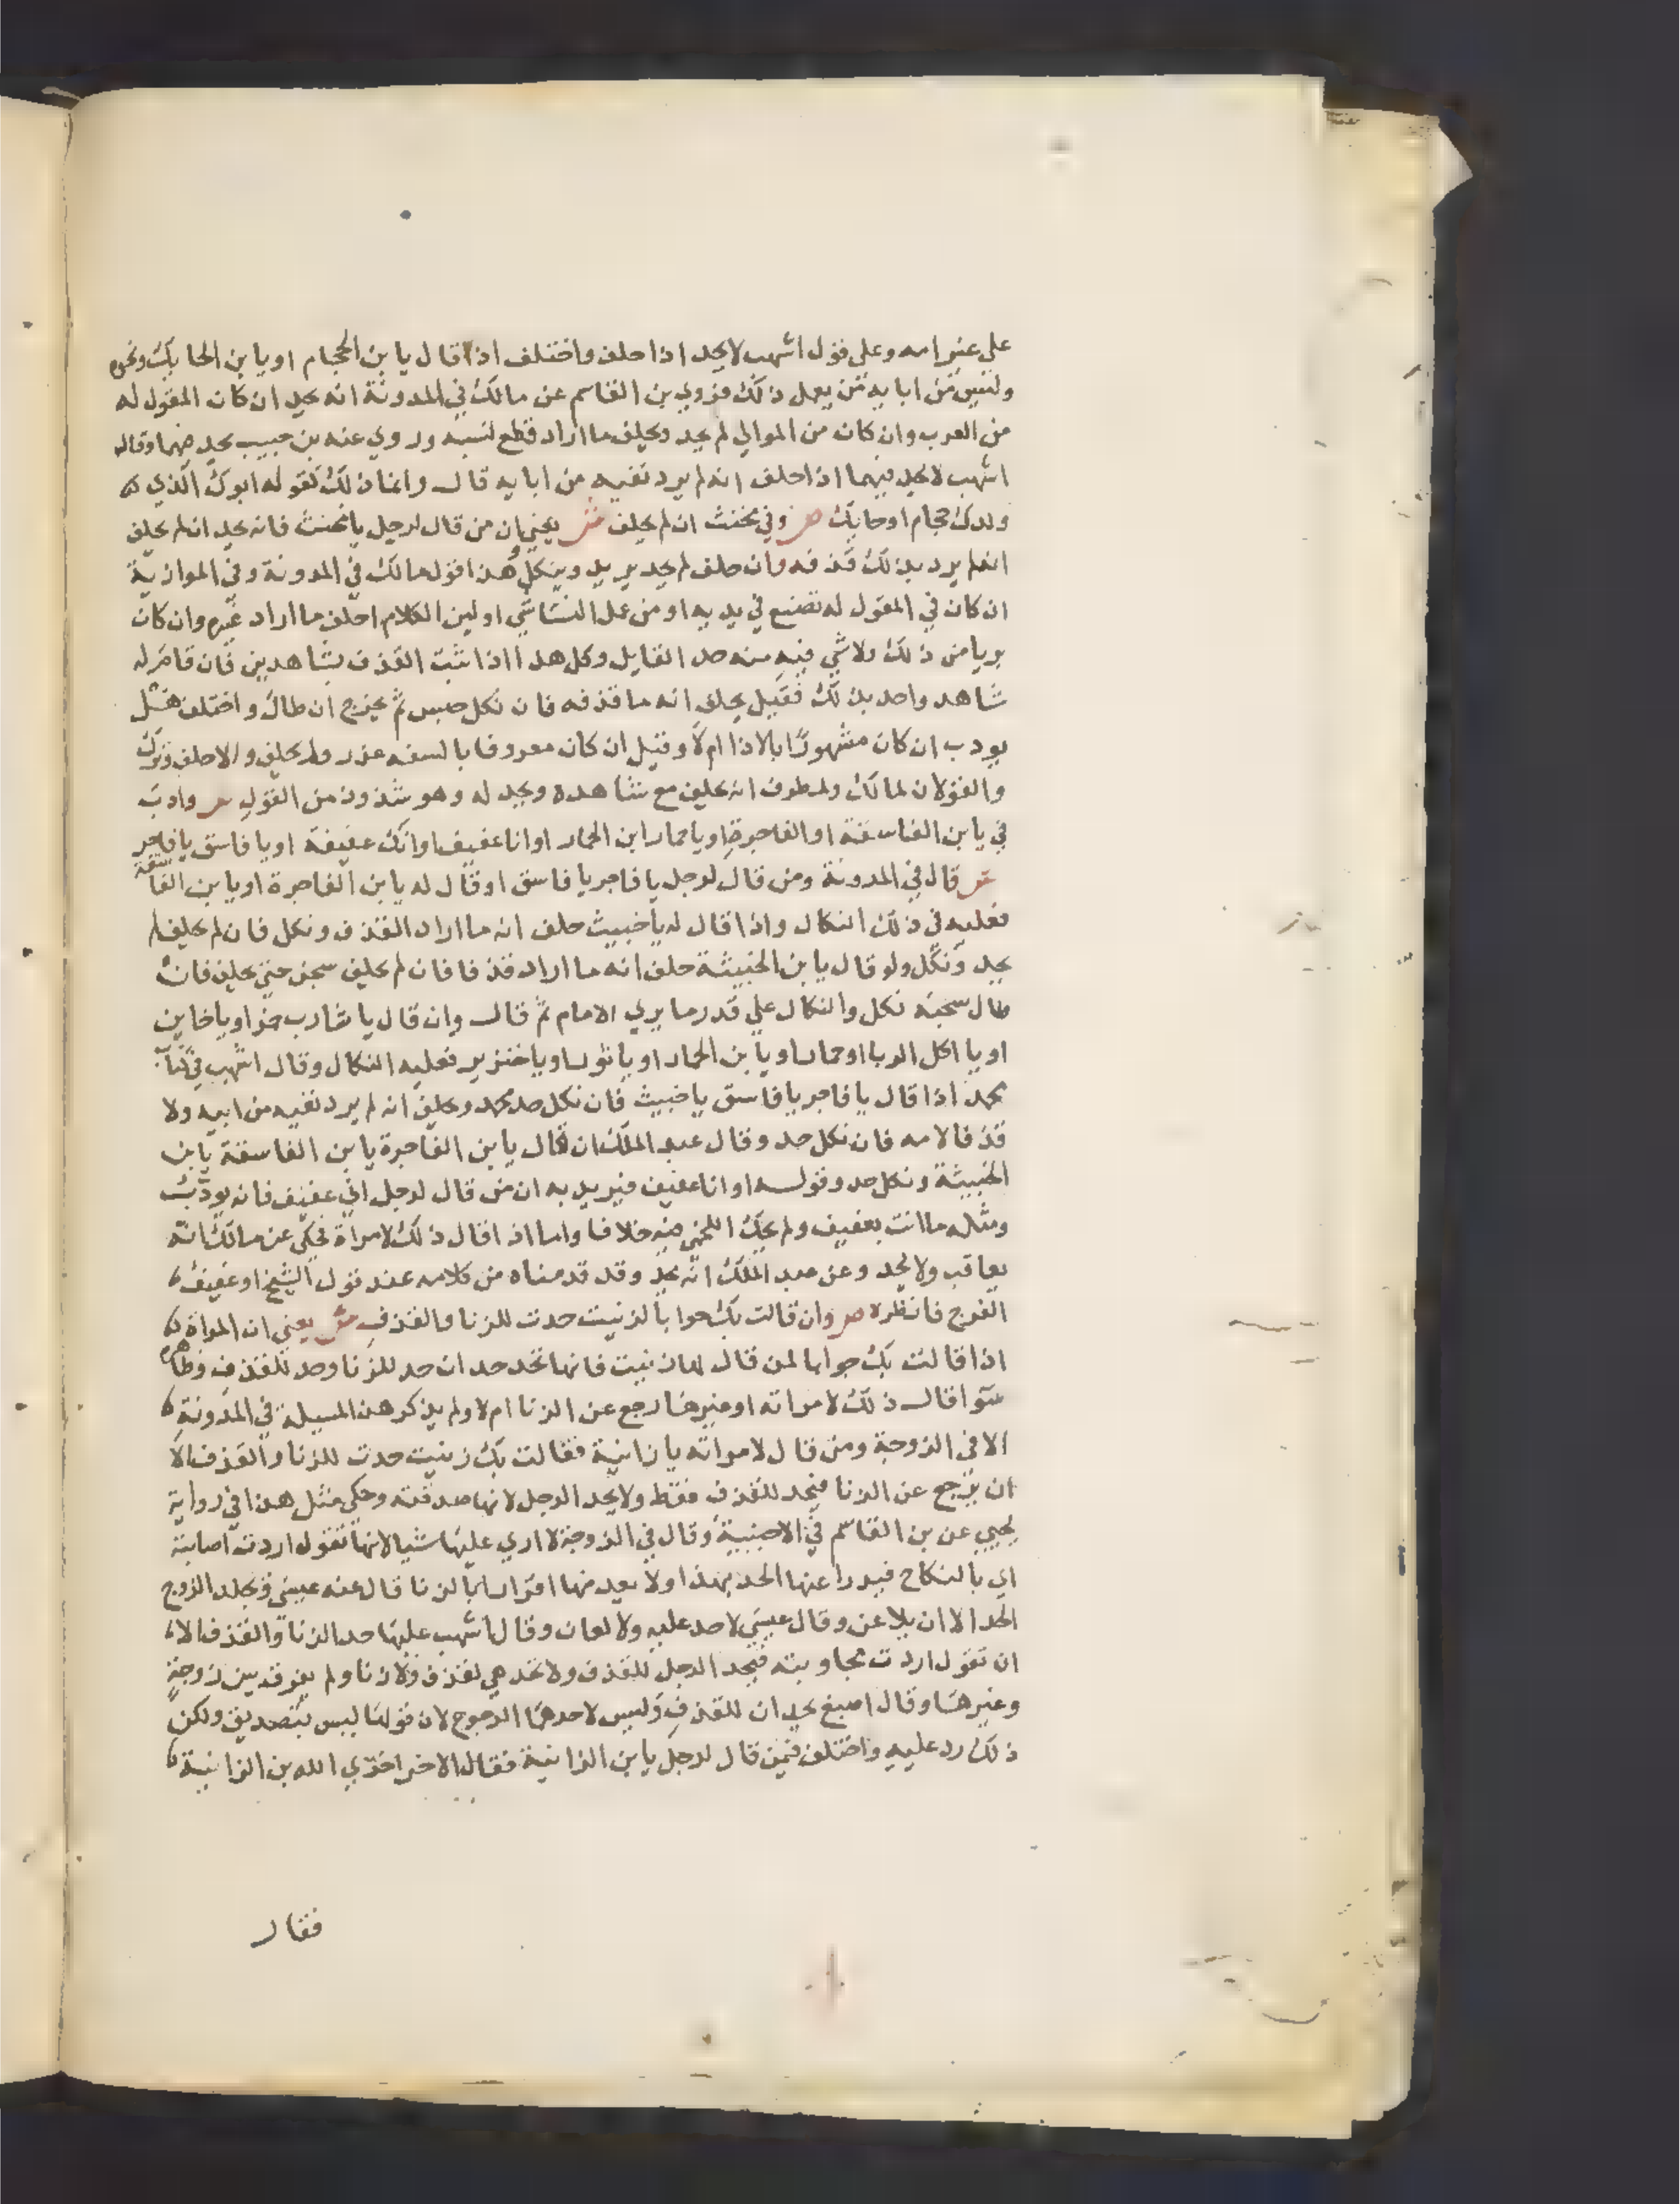 على غير امه وعلى قول اشهب لا يحد اذا حلف واختلف اذا قال يا بن الحجام او يا بن الحايك ونحوه
وليس من ابايه من يعمل ذلك فروي بن القاسم عن مالك في المدونة انه يحد ان كان المقول له
من العرب وان كان من الموالي لم يحد ويحلف ما اراد قطع نسبه وروي عنه بن حبيب يحد فيهما وقال
اشهب لا يحد فيهما اذا حلف انه لم يرد نفيه من ابايه قال وانما ذلك كقوله ابوك الذي
ولدك حجام او حايك ص وفي مخنث ان لم يحلف ش يعني ان من قال لرجل يا مخنث فانه يحد ان لم يحلف
انه لم يرد بذلك قذفه وان حلف لم يحد يريد وينكل هذا قول مالك في المدونة وفي الموازية
ان كان في المقول له تصنيع في يديه او من عمل النسا شي او لين الكلام احلف ما اراد غيره وان كان
بريا من ذلك ولا شي فيه منه حد القايل وكل هذا اذا ثبت القذف بشاهدين فان قام له
شاهد واحد بذلك فقيل يحلف انه ما قذفه فان نكل حبس ثم يخرج ان طال واختلف هل
يودب ان كان مشهورا بالاذا ام لا وقيل ان كان معروفا بالسفه عزر ولم يحلف والا حلف وترك
والقولان لمالك ولمطرف انه يحلف مع شاهده ويحد له وهو شذوذ من القول ص وادب
في يا بن الفاسقة او الفاجرة او يا حمار ابن الحمار او انا عفيف او انك عفيفة او يا فاسق يا فاجر
ش قال في المدونة ومن قال لرجل يا فاجر يا فاسق او قال له يا بن الفاجرة او يا بن الفاسقة
فعليه في ذلك النكال واذا قال له يا خبيث حلف انه ما اراد القذف ونكل فان لم يحلف لم
يحد ونكل ولو قال يا بن الخبيثة حلف انه ما اراد قذفا فان لم يحلف سجن حتى يحلف فان
طال سجنه نكل والنكال على قدر ما يري الامام ثم قال وان قال يا شارب خمر او يا خاين
او يا اكل الربا او حمار او يا بن الحمار او يا ثور او يا خنزير فعليه النكال وقال اشهب في كتاب
محمد اذا قال يا فاجر يا فاسق يا خبيث فان نكل حد محمد ويحلف انه لم يرد نفيه من ابيه ولا
قذفا لامه فان نكل حد وقال عبد الملك ان قال يا بن الفاجرة يا بن الفاسقة يا بن
الخبيثة ونكل حد وقوله او انا عفيف فيريد به ان من قال لرجل اني عفيف فانه يودب
ومثله ما انت بعفيف ولم يحك اللخمي فيه خلافا واما اذا قال ذلك لامراة فحكي عن مالك انه
يعاقب ولا يحد وعن عبد الملك انه يحد وقد قدمناه من كلامه عند قول الشيخ او عفيف
الفرج فانظره ص وان قالت بك جوابا لزنيت حدت للزنا والقذف ش يعني ان المراة
اذا قالت بك جوابا لمن قال لها زنيت فانها تحد حدان حد للزنا وحد للقذف وظاهره
سوا قال ذلك لامراته او غيرها رجع عن الزنا ام لا ولم يذكر هذه المسيلة في المدونة
الا في الزوجة ومن قال لامراته يا زانية فقالت بك زنيت حدت للزنا والقذف الا
ان ترجع عن الزنا فيحد للقذف فقط ولا يحد الرجل لانها صدقته وحكي مثل هذا في رواية
يحيي عن بن القاسم في الاجنبية وقال في الزوجة لا اري عليها شيا لانها تقول اردت اصابته
اي بالنكاح فيدرا عنها الحد بهذا ولا يعد منها اقرارا بالزنا قال عنه عيسى ويجلد الزوج
الحد الا ان يلاعن وقال عيسى لا حد عليه ولا لعان وقال اشهب عليها حد الزنا والقذف الا
ان تقول اردت مجاوبته فيحد الرجل للقذف ولا تحد هي لقذف ولا زنا ولم يفرق بين زوجة
وغيرها وقال اصبغ يحدان للقذف وليس لاحدهما الرجوع لان قولها ليس بتصديق ولكن
ذلك رد عليه واختلف فيمن قال لرجل يا بن الزانية فقال الاخر اخزي الله بن الزانية
فقال